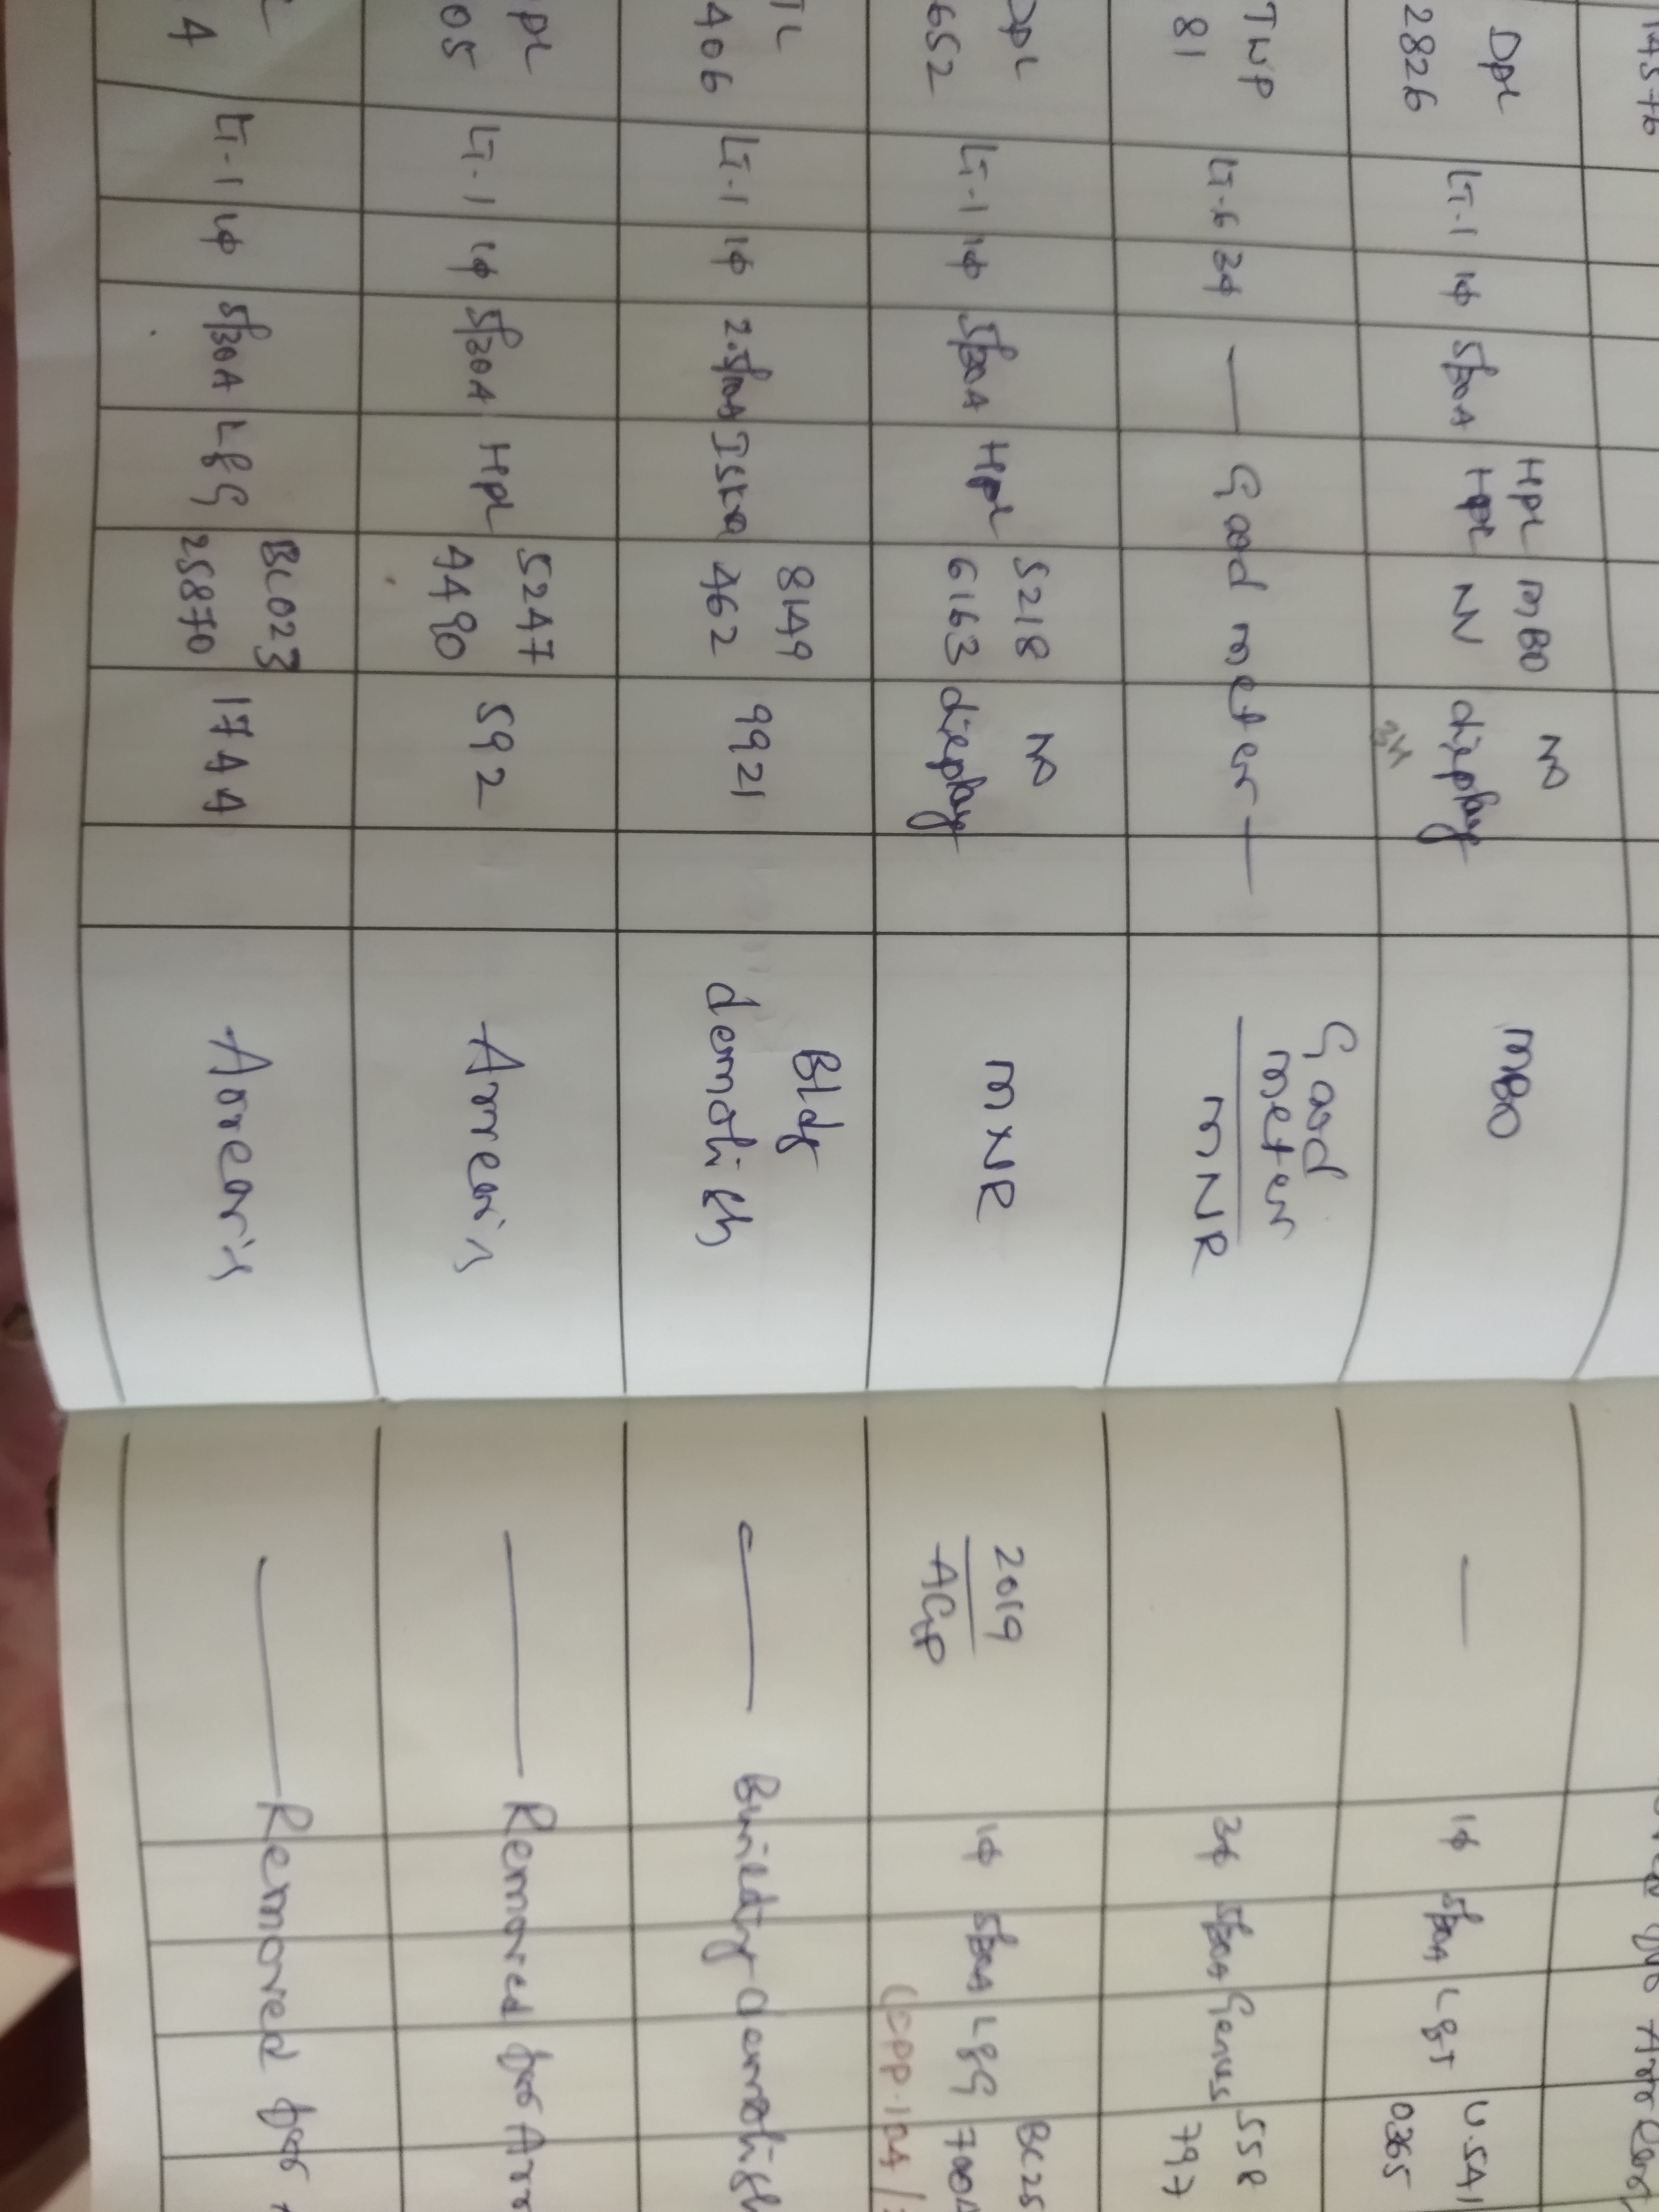 14576
Dpl LT-1 1φ 5/30A Hpl MBO No MBO — 1φ 5/30A L&T U.SAI
2826 Hpl NV display 0365
TWP LT-6 3φ — Good meter — Good meter 3φ 5/30A Genus SSR
81 MNR 797
Dpl LT-1 1φ 5/30A Hpl 5218 No MXNR 2019 1φ 5/30A L&G BC25
652 6163 display AGP 7004
TL LT-1 1φ 2.5/10A Iskra 8149 9921 Bldg — Building demolish
406 462 demolish
pl LT-1 1φ 5/30A Hpl 5247 592 Arrears — Removed for Arr
05 4490
4 LT-1 1φ 5/30A L&G BC023 1744 Arrears — Removed for
25870